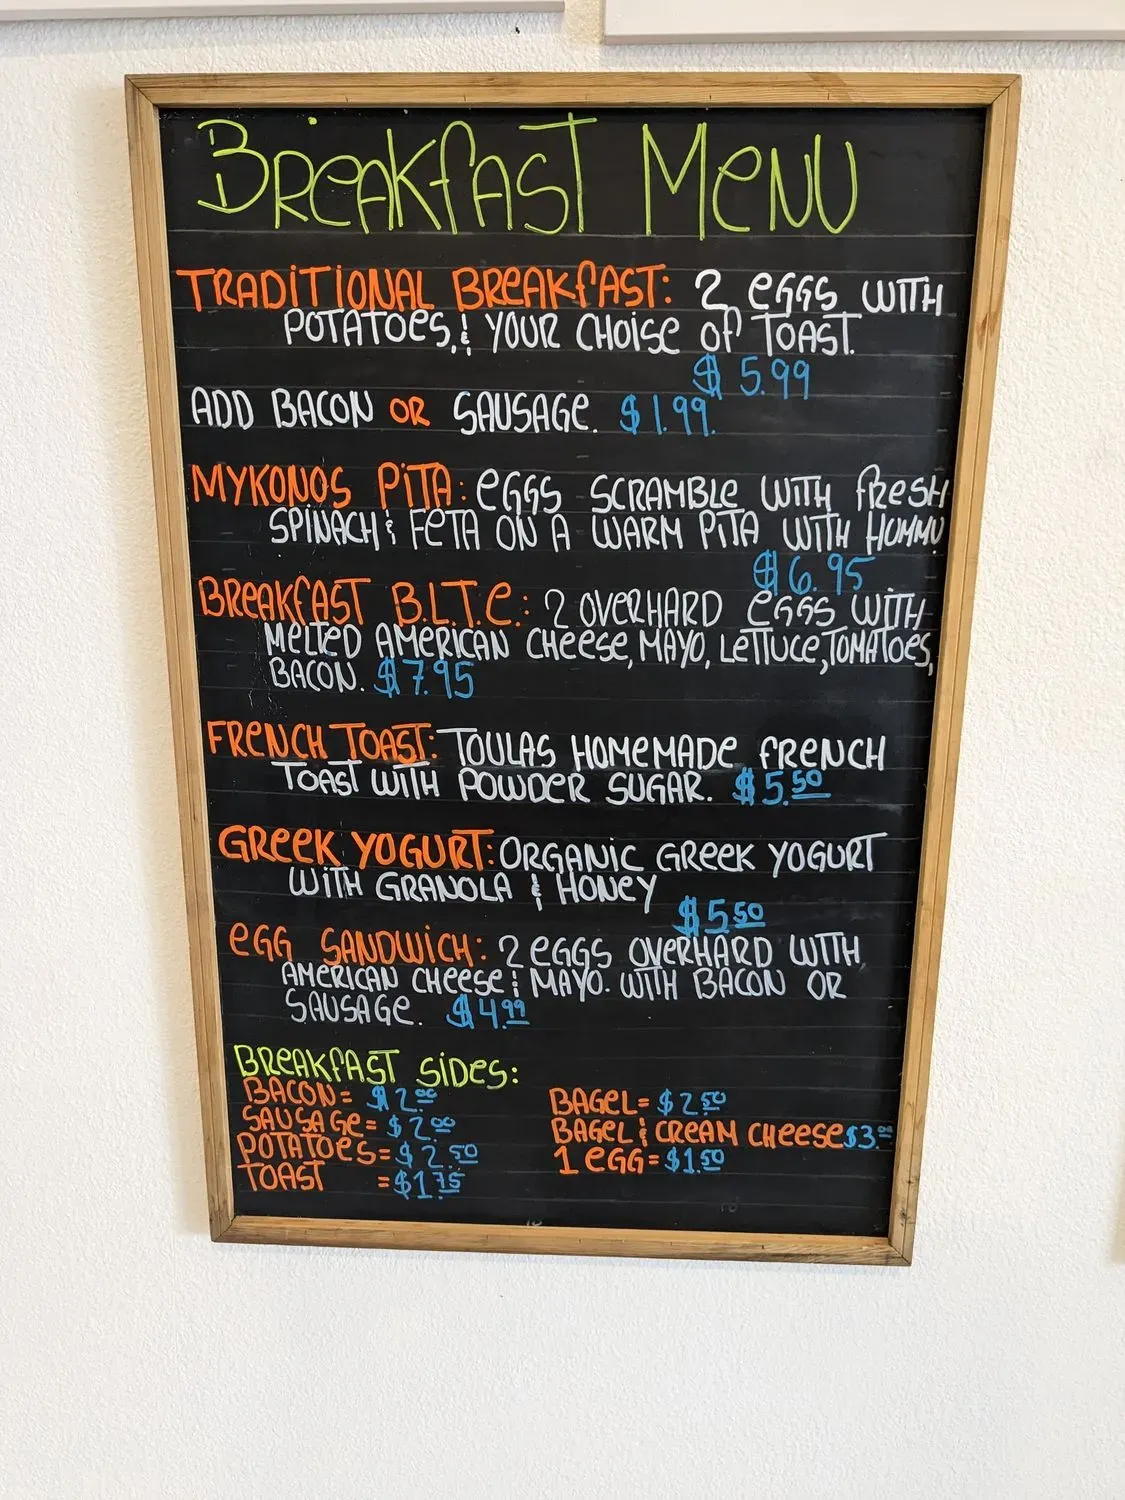 BREAKFAST MENU
TRADITIONAL BREAKFAST: 2 EGGS WITH
POTATOES, & YOUR CHOISE OF TOAST.
$5.99
ADD BACON OR SAUSAGE. $1.99.
MYKONOS PITA: EGGS SCRAMBLE WITH FRESH
SPINACH & FETA ON A WARM PITA WITH HUMMU
$6.95
BREAKFAST B.L.T.E.: 2 OVERHARD EGGS WITH
MELTED AMERICAN CHEESE, MAYO, LETTUCE, TOMATOES,
BACON. $7.95
FRENCH TOAST: TOULAS HOMEMADE FRENCH
TOAST WITH POWDER SUGAR. $5.50
GREEK YOGURT: ORGANIC GREEK YOGURT
WITH GRANOLA & HONEY
$5.50
EGG SANDWICH: 2 EGGS OVERHARD WITH
AMERICAN CHEESE & MAYO. WITH BACON OR
SAUSAGE. $4.99
BREAKFAST SIDES:
BACON = $2.00
SAUSAGE = $2.00
POTATOES = $2.50
TOAST = $1.75
BAGEL = $2.50
BAGEL & CREAM CHEESE $3.00
1 EGG = $1.50